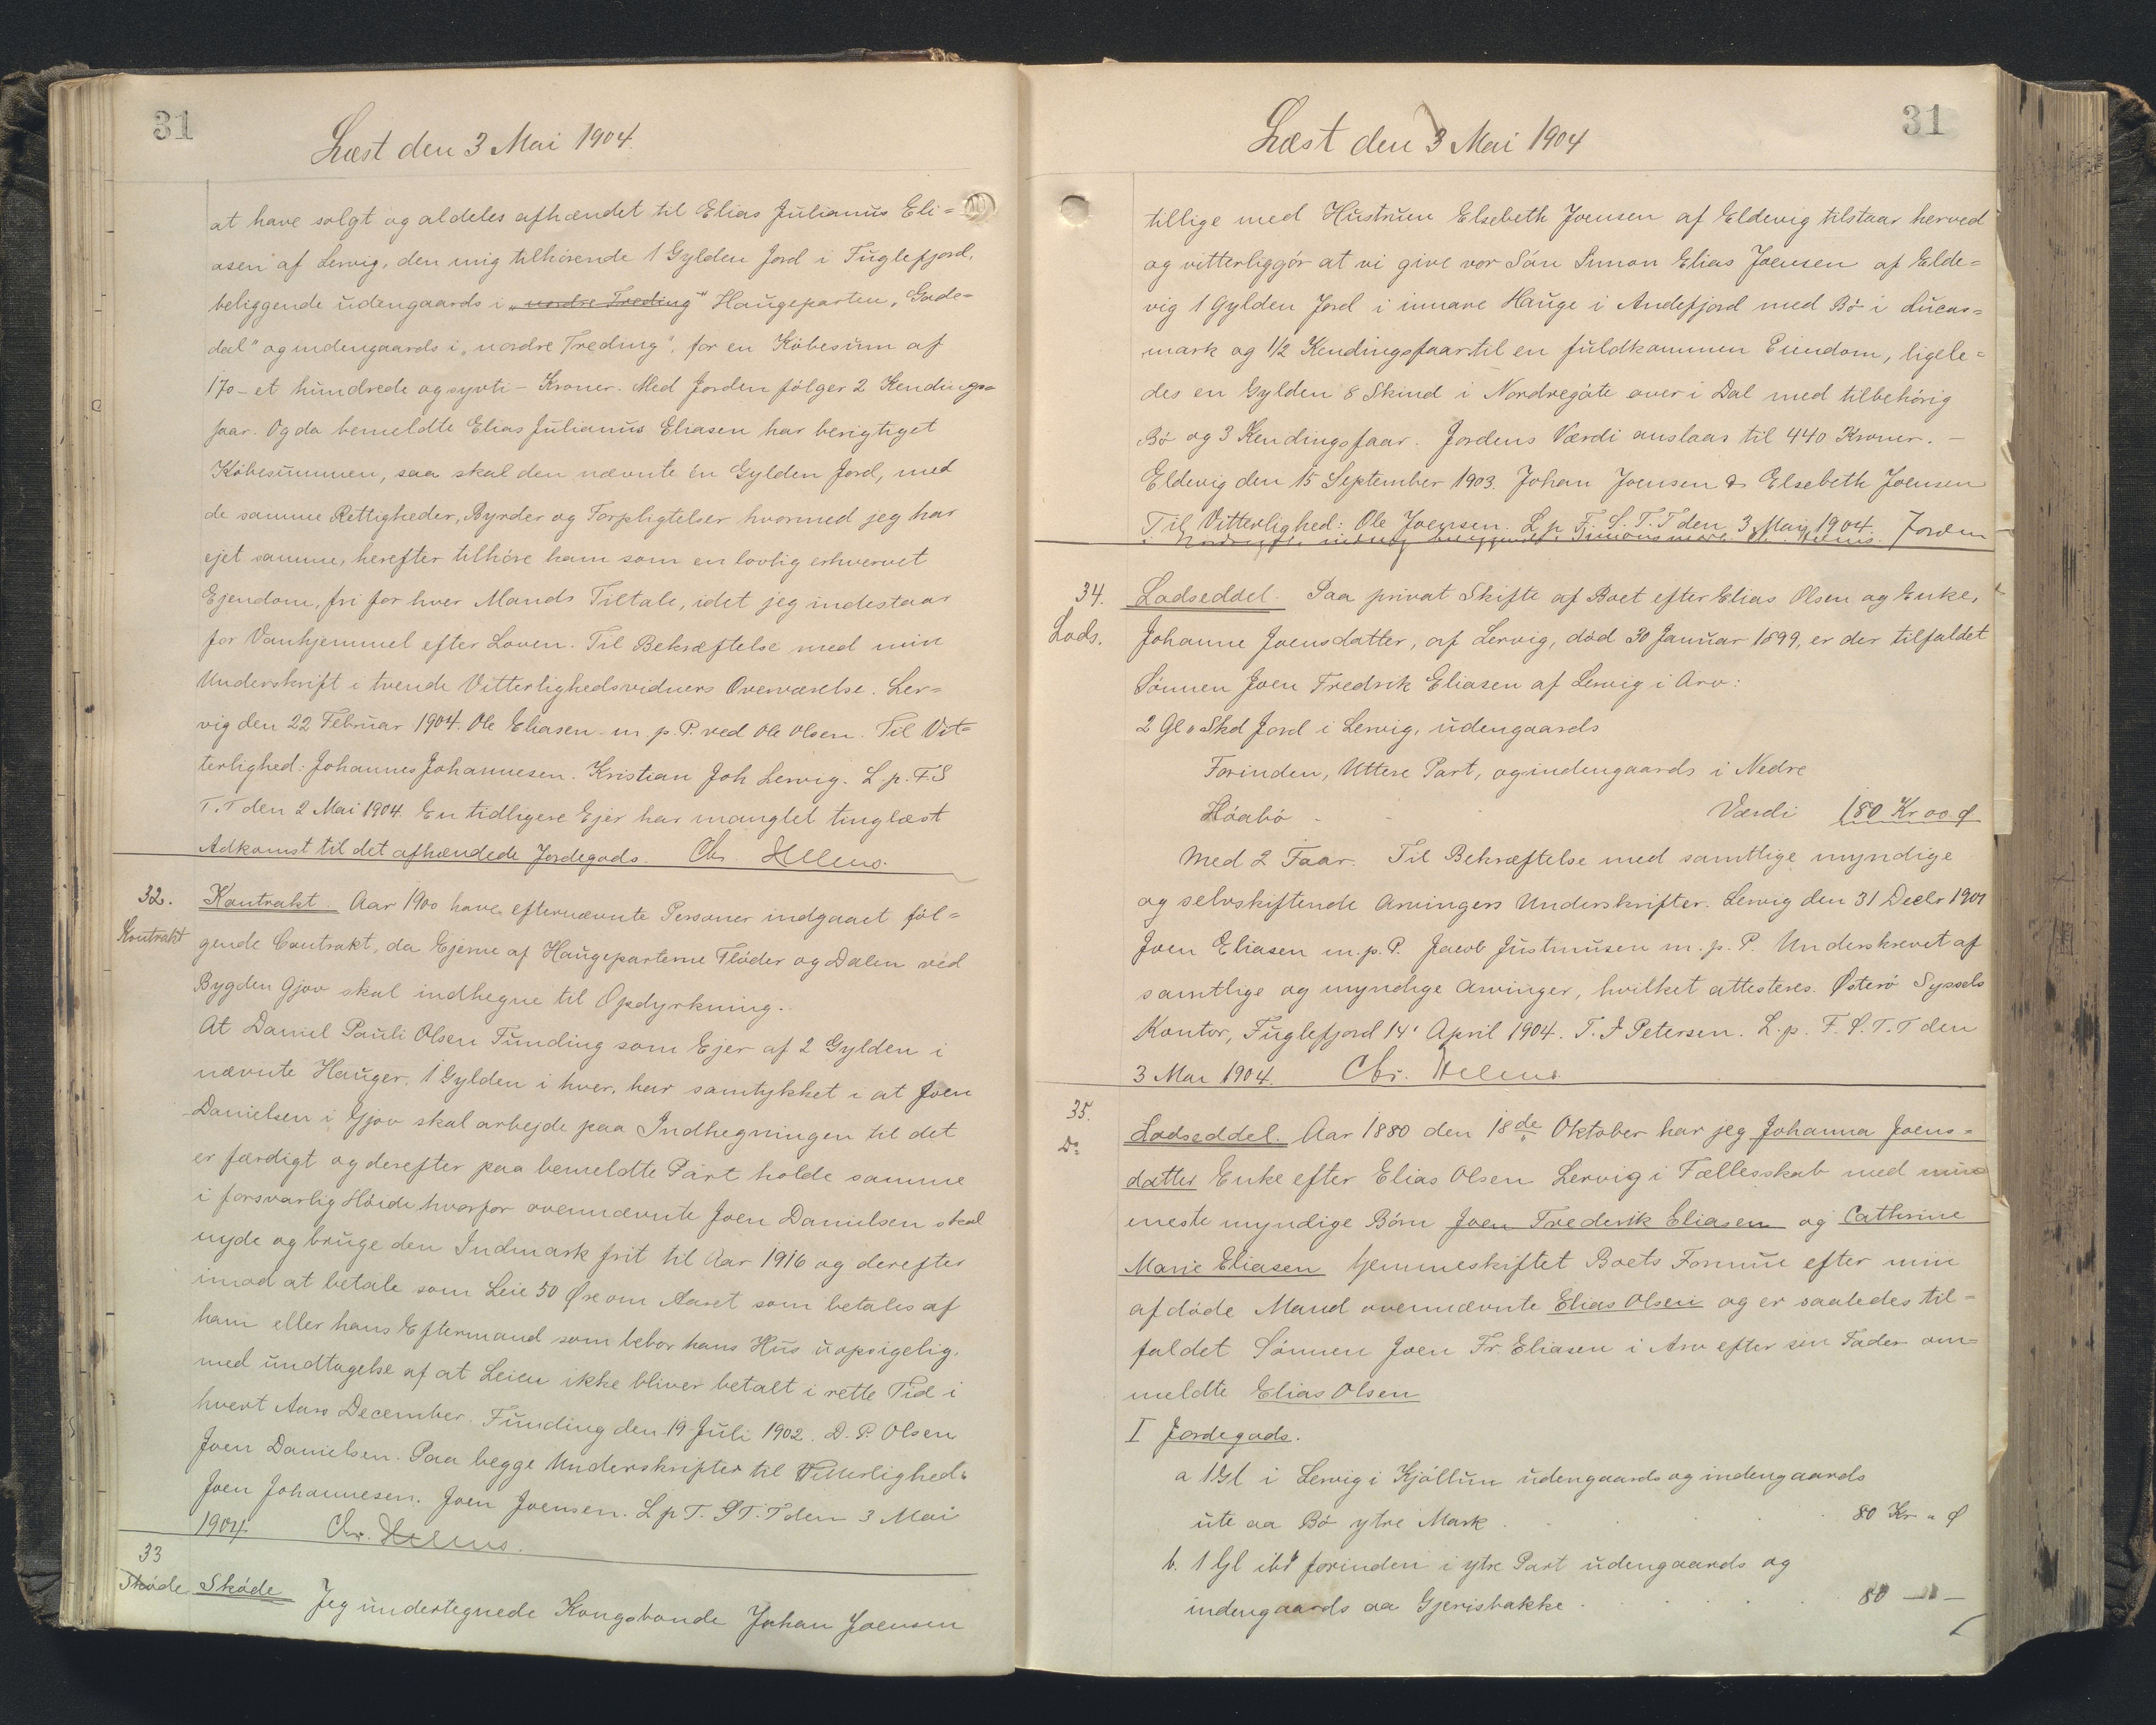 31
Læst den 3 Mai 1904.
at have solgt og aldeles afhændet til Elias Julianus Eli=
asen af Lervig, den mig tilhørende 1 Gylden Jord i Fuglefjord,
beliggende udengaards i „nordre Treding" Haugeparten „Gade=
dal" og indengaards i „nordre Treding", for en Købesum af
170 - et hundrede og syvti - Kroner. Med Jorden følger 2 Kendings=
faar. Og da bemeldte Elias Julianus Eliasen har berigtiget
Købesummen, saa skal den nævnte én Gylden Jord, med
de samme Rettigheder, Byrder og Forpligtelser hvormed jeg har
ejet samme, herefter tilhøre ham som en lovlig erhvervet
Ejendom, fri for hver Mands Tiltale, idet jeg indestaar
for Vanhjemmel efter Loven. Til Bekræftelse med min
Underskrift i tvende Vitterlighedsvidners Overværelse. Ler=
vig den 22 Februar 1904. Ole Eliasen m. p. P. ved Ole Olsen. Til Vit=
terlighed: Johannes Johannesen. Kristian Joh Lervig. L. p. F. S
T. T den 2 Mai 1904. En tidligere Ejer har manglet tinglæst
Adkomst til det afhændede Jordegods. Chr. Helms.
32.
Kontrakt
Kontrakt. Aar 1900 have efternævnte Personer indgaaet føl=
gende Contrakt, da Ejerne af Haugeparterne Fløder og Dalen ved
Bygden Gjov skal indhegne til Opdyrkning.
At Daniel Pauli Olsen Funding som Ejer af 2 Gylden i
nævnte Hauger, 1 Gylden i hver, har samtykket i at Joen
Danielsen i Gjov skal arbejde paa Indhegningen til det
er færdigt og derefter paa bemeldte Part holde samme
i forsvarlig Høide, hvorfor ovennævnte Joen Danielsen skal
nyde og bruge den Indmark frit til Aar 1916 og derefter
imod at betale som Leie 50 Øre om Aaret som betales af
ham eller hans Eftermand som bebor hans Hus uopsigelig.
med undtagelse af at Leien ikke bliver betalt i rette Tid i
hvert Aars December. Funding den 19 Juli 1902. D. P. Olsen
Joen Danielsen. Paa begge Underskrifter til Vitterlighed:
Joen Johannesen. Joen Joensen. L p F. S T. T den 3 Mai
1904. Chr. Helms.
33
Skøde
Skøde Jeg undertegnede Kongsbonde Johan Joensen
31
Læst den 3 Mai 1904
tillige med Hustruen Elsebeth Joensen af Eldevig tilstaar herved
og vitterliggør at vi give vor Søn Simon Elias Joensen af Elde=
vig 1 Gylden Jord i innare Hauge i Andefjord med Bø i Lucas=
mark og 1/2 Kendingsfaar til en fuldkommen Eiendom, ligele=
des en Gylden 8 Skind i Nordregøte over i Dal med tilbehørig
Bø og 3 Kendingsfaar. Jordens Værdi anslaas til 440 Kroner. -
Eldevig den 15 September 1903. Johan Joensen & Elsebeth Joensen
Til Vitterlighed: Ole Joensen. L p F. S. T. T den 3 Mai 1904. Jorden
34.
Lods.
Lodseddel. Paa privat Skifte af Boet efter Elias Olsen og Enke,
Johanne Joensdatter, af Lervig, død 30 Januar 1899, er der tilfaldet
Sønnen Joen Fredrik Eliasen af Lervig i Arv:
2 Gl 0 Skd Jord i Lervig, udengaards
Forinden, Uttere Part, og indengaards i Nedre
Høabø - - Værdi 180 Kr 00 Ø
Med 2 Faar. Til Bekræftelse med samtlige myndige
og selvskiftende Arvingers Underskrifter. Lervig den 31 Decbr 1901
Joen Eliasen m. p. P. Jacob Justinusen m. p. P. Underskrevet af
samtlige og myndige Arvinger, hvilket attesteres. Østerø Syssels
Kontor, Fuglefjord 14' April 1904. T. J Petersen. L. p. F. S. T. T den
3 Mai 1904. Chr. Helms.
35.
Do
Lodseddel. Aar 1880 den 18de Oktober har jeg Johanna Joens=
datter Enke efter Elias Olsen Lervig i Fællesskab med mine
eneste myndige Børn Joen Frederik Eliasen og Cathrine
Marie Eliasen hjemmeskiftet Boets Formue efter min
afdøde Mand ovennævnte Elias Olsen og er saaledes til=
faldet Sønnen Joen Fr. Eliasen i Arv efter sin Fader om=
meldte Elias Olsen
I Jordegods.
a 1 Gl i Lervig i Kjøllun udengaards og indengaards
ute aa Bø ytre Mark . . . . 80 Kr " Ø
b. 1 Gl ibd forinden i ytre Part udengaards og
indengaards aa Gjerisbakke . . . . 80 — " —